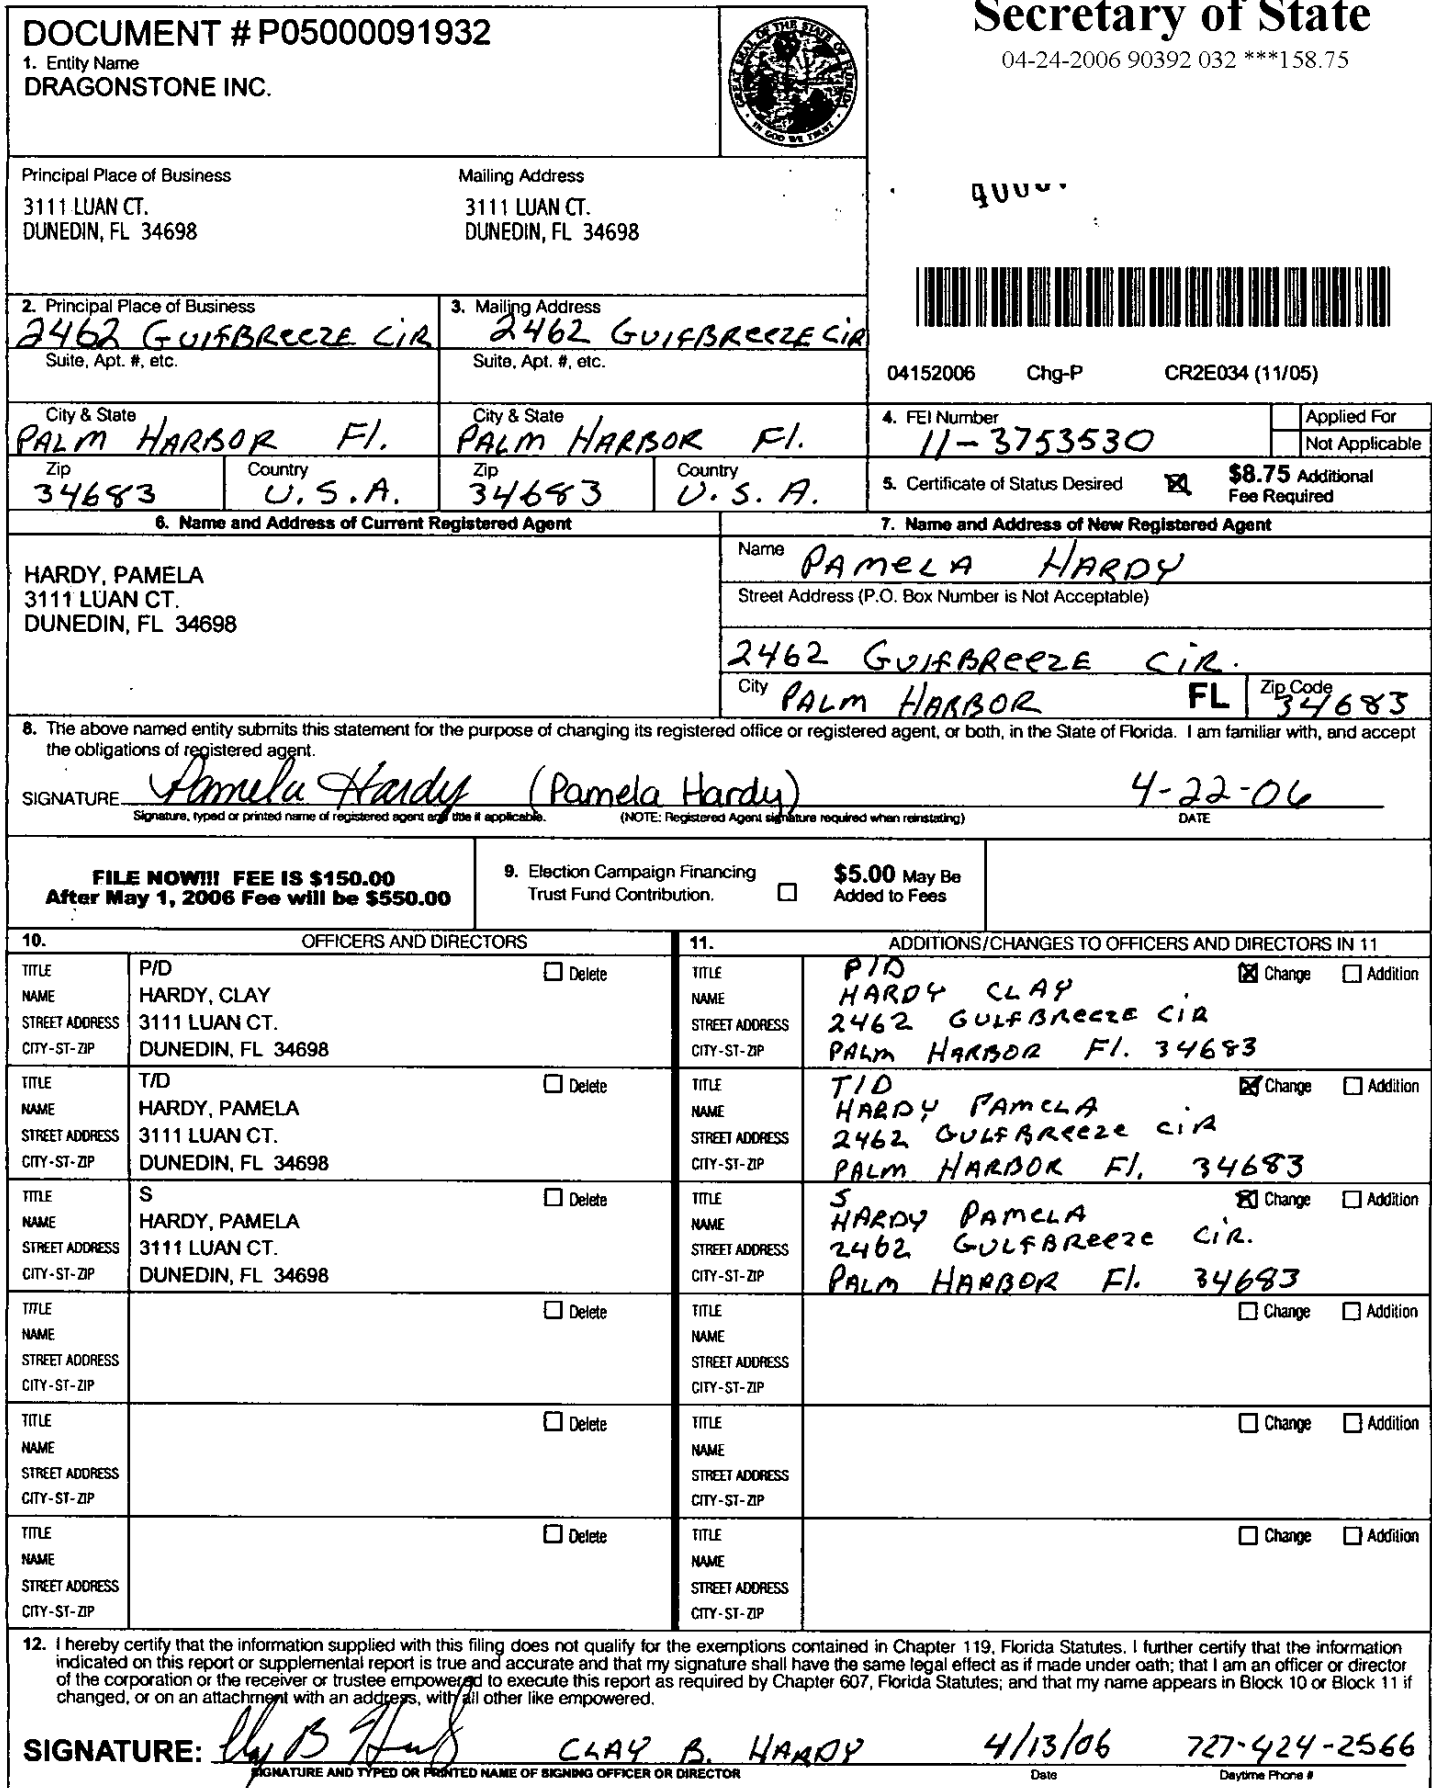 Secretary of State
04-24-2006 90392 032 ***158.75
DOCUMENT # P05000091932
1. Entity Name
DRAGONSTONE INC.
GREAT SEAL OF THE STATE OF FLORIDA
IN GOD WE TRUST
Principal Place of Business
3111 LUAN CT.
DUNEDIN, FL 34698
Mailing Address
3111 LUAN CT.
DUNEDIN, FL 34698
2. Principal Place of Business
2462 GulfBReeze CiR
Suite, Apt. #, etc.
City & State
PALM HARBOR Fl.
Zip
34683
Country
U.S.A.
3. Mailing Address
2462 GulfBReeze CiR
Suite, Apt. #, etc.
City & State
PALM HARBOR Fl.
Zip
34683
Country
U.S.A.
04152006 Chg-P CR2E034 (11/05)
4. FEI Number
11-3753530
Applied For
Not Applicable
5. Certificate of Status Desired
$8.75 Additional
Fee Required
6. Name and Address of Current Registered Agent
HARDY, PAMELA
3111 LUAN CT.
DUNEDIN, FL 34698
7. Name and Address of New Registered Agent
Name PAMELA HARDY
Street Address (P.O. Box Number is Not Acceptable)
2462 GulfBReeze CiR.
City PALM HARBOR FL Zip Code 34683
8. The above named entity submits this statement for the purpose of changing its registered office or registered agent, or both, in the State of Florida. I am familiar with, and accept
the obligations of registered agent.
SIGNATURE Pamela Hardy (Pamela Hardy) 4-22-06
Signature, typed or printed name of registered agent and title if applicable. (NOTE: Registered Agent signature required when reinstating) DATE
FILE NOW!!! FEE IS $150.00
After May 1, 2006 Fee will be $550.00
9. Election Campaign Financing
Trust Fund Contribution.
$5.00 May Be
Added to Fees
10. OFFICERS AND DIRECTORS
TITLE P/D Delete
NAME HARDY, CLAY
STREET ADDRESS 3111 LUAN CT.
CITY-ST-ZIP DUNEDIN, FL 34698
TITLE T/D Delete
NAME HARDY, PAMELA
STREET ADDRESS 3111 LUAN CT.
CITY-ST-ZIP DUNEDIN, FL 34698
TITLE S Delete
NAME HARDY, PAMELA
STREET ADDRESS 3111 LUAN CT.
CITY-ST-ZIP DUNEDIN, FL 34698
TITLE Delete
NAME
STREET ADDRESS
CITY-ST-ZIP
TITLE Delete
NAME
STREET ADDRESS
CITY-ST-ZIP
TITLE Delete
NAME
STREET ADDRESS
CITY-ST-ZIP
11. ADDITIONS/CHANGES TO OFFICERS AND DIRECTORS IN 11
TITLE P/D Change Addition
NAME HARDY CLAY
STREET ADDRESS 2462 GULFBReeze CiR
CITY-ST-ZIP PALM HARBOR Fl. 34683
TITLE T/D Change Addition
NAME HARDY PAMELA
STREET ADDRESS 2462 GULFBReeze CiR
CITY-ST-ZIP PALM HARBOR Fl. 34683
TITLE S Change Addition
NAME HARDY PAMELA
STREET ADDRESS 2462 GULFBReeze CiR.
CITY-ST-ZIP PALM HARBOR Fl. 34683
TITLE Change Addition
NAME
STREET ADDRESS
CITY-ST-ZIP
TITLE Change Addition
NAME
STREET ADDRESS
CITY-ST-ZIP
TITLE Change Addition
NAME
STREET ADDRESS
CITY-ST-ZIP
12. I hereby certify that the information supplied with this filing does not qualify for the exemptions contained in Chapter 119, Florida Statutes. I further certify that the information
indicated on this report or supplemental report is true and accurate and that my signature shall have the same legal effect as if made under oath; that I am an officer or director
of the corporation or the receiver or trustee empowered to execute this report as required by Chapter 607, Florida Statutes; and that my name appears in Block 10 or Block 11 if
changed, or on an attachment with an address, with all other like empowered.
SIGNATURE: Clay B Hardy CLAY B. HARDY 4/13/06 727-424-2566
SIGNATURE AND TYPED OR PRINTED NAME OF SIGNING OFFICER OR DIRECTOR Date Daytime Phone #